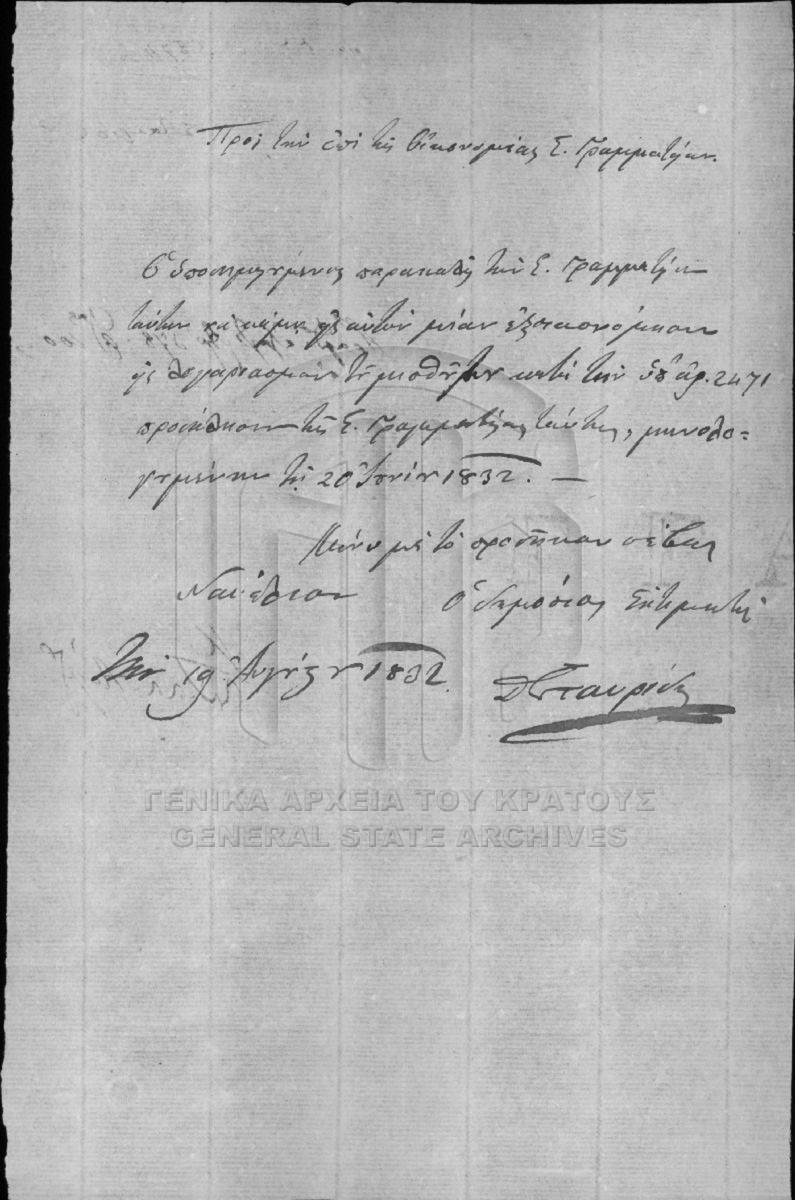 Πρὸς τὴν ἐπὶ τῆς Οἰκονομίας Σ. Γραμματείαν.
Ὁ ὑποσημειούμενος παρακαλεῖ τὴν Σ. Γραμματείαν
ταύτην νὰ κάμῃ εἰς αὐτὸν μίαν ἐξοικονόμησιν
εἰς λογαριασμὸν τοῦ μισθοῦ του κατὰ τὴν ὑπ' ἀρ. 2471
πρόσκλησιν τῆς Σ. Γραμματείας ταύτης, μηνολο=
γουμένην τῇ 20 Ἰουνίου 1832. —
Μένω μὲ τὸ προσῆκον σέβας
Ναύπλιον ὁ δημόσιος Ἐκτιμητὴς
τὴν 19 Αὐγούστου 1832. Δ Σταυρίδης
ΓΕΝΙΚΑ ΑΡΧΕΙΑ ΤΟΥ ΚΡΑΤΟΥΣ
GENERAL STATE ARCHIVES